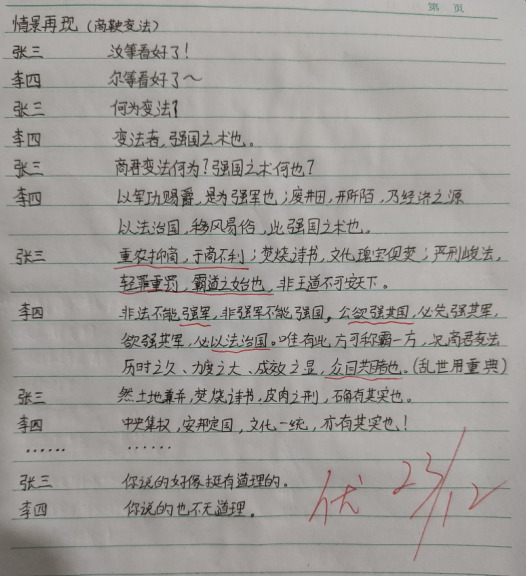 第 页
情景再现（商鞅变法）
张三 汝等看好了！
李四 尔等看好了～
张三 何为变法？
李四 变法者，强国之术也。
张三 商君变法何为？强国之术何也？
李四 以军功赐爵，是为强军也；废井田，开阡陌，乃经济之源
以法治国，移风易俗，此强国之术也。
张三 重农抑商，于商不利；焚烧诗书，文化瑰宝俱焚；严刑峻法，
轻罪重罚，霸道之始也，非王道不可安天下。
李四 非法不能强军，非强军不能强国，公欲强其国，必先强其军，
欲强其军，必以法治国。唯有此，方可称霸一方，况商君变法
历时之久、力度之大、成效之显，众目共睹也。（乱世用重典）
张三 然土地兼并，焚烧诗书，皮肉之刑，确有其实也。
李四 中央集权，安邦定国，文化一统，亦有其实也！
…… ……
张三 你说的好像挺有道理的。
李四 你说的也不无道理。
优 23/12